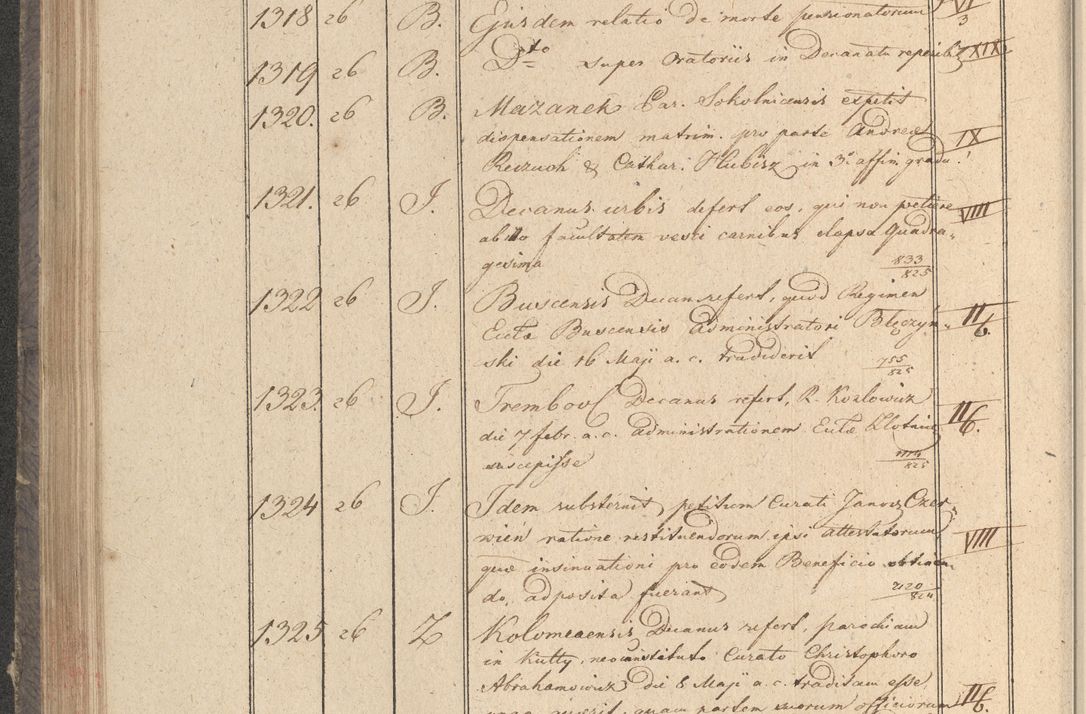 1318 26 B. Ejusdem relatio de morte pensionatorum VI/3
1319 26 B. Dtto super Oratoriis in Decanatu reperibil. XXIX
1320. 26 B. Mazanek Par. Sokolnicensis expetit
dispensationem matrim. pro parte Andreae IX
& Cathar. Hubisz in 3o affin. gradu.
1321. 26 J. Decanus urbis defert eos, qui non petiere VIII
ab Ito facultatem vesci carnibus elapsa Quadra-
gesima 833/825
1322 26 J. Buscensis Decan. refert, quod Regimen
Eccl̄ae Buscensis Administratori Błęczyń- II/b.
ski die 16 Maji a. c. tradiderit 755/825
1323. 26 J. Trembovl. Decanus refert, R. Kozlowicz
die 7 febr. a. c. administrationem Eccl̄ae II/b.
suscepisse
1324 26 J. Idem substernit petitum Curati Janov Czer-
wień ratione restituendorum ipsi attestatorum VIII
quae insinuationi pro eodem Beneficio obtinen-
do, adposita fuerant
1325 26 Z Kolomeaensis Decanus refert, parochiam
in Kutty, neoinstituto Curato Christophoro
Abrahamowicz die 8 Maji a. c. traditam esse
quam partem suorum officiorum II/b.